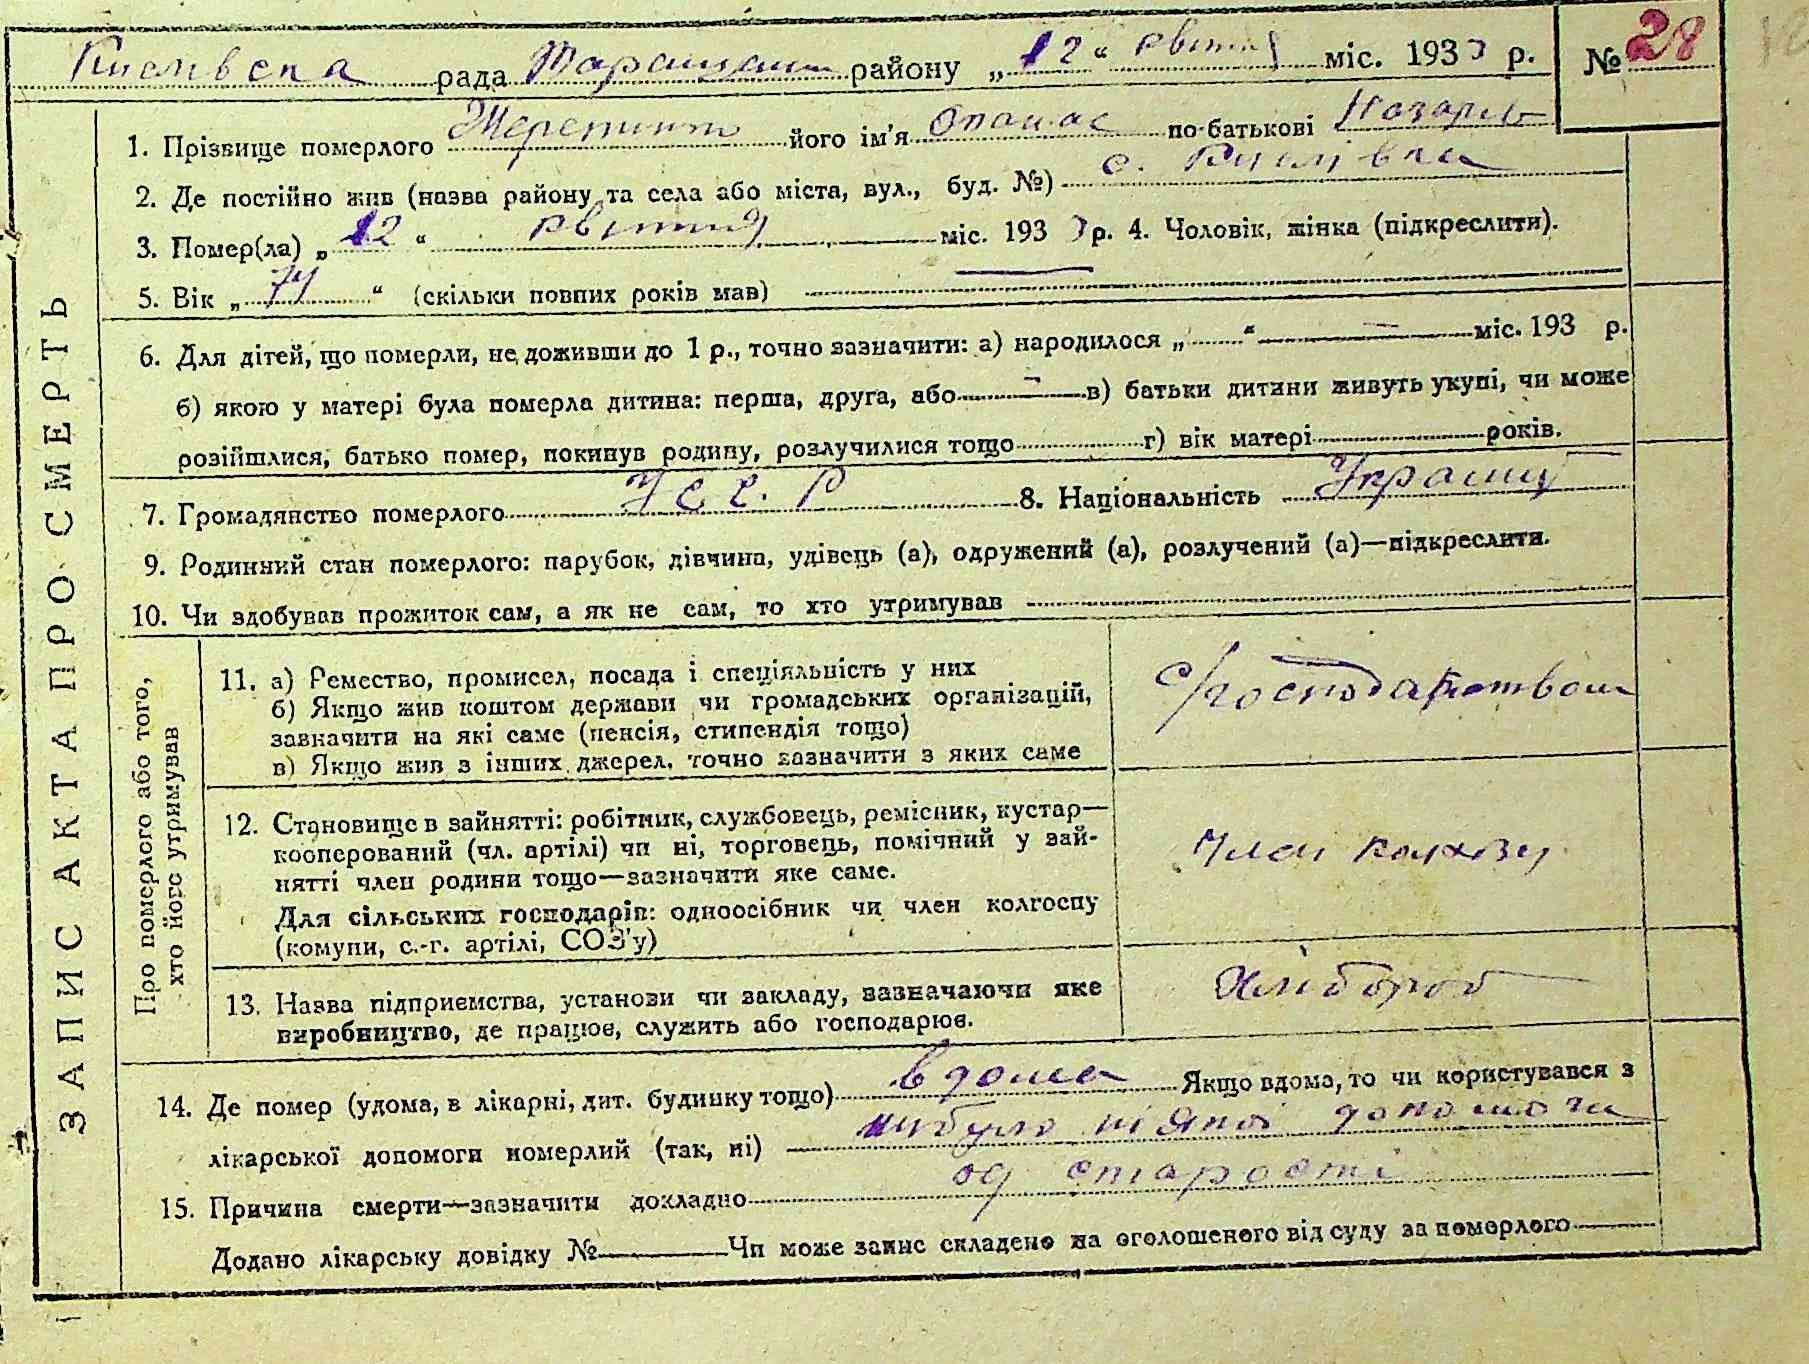 Кислівска рада Таращан району „12“ квітня міс. 1933 р. № 28
1. Прізвище померлого його ім'я Опанас по-батькові Назаров
2. Де постійно жив (назва району та села або міста, вул., буд. №) с. Кислівка
3. Помер(ла) „12“ квітня міс. 1933 р. 4. Чоловік, жінка (підкреслити).
5. Вік „74“ (скільки повних років мав)
6. Для дітей, що померли, не доживши до 1 р., точно зазначити: а) народилося „ “ міс. 193 р.
б) якою у матері була померла дитина: перша, друга, або — в) батьки дитини живуть укупі, чи може
розійшлися, батько помер, покинув родину, розлучилися тощо г) вік матері років.
7. Громадянство померлого У С С. Р 8. Національність Украінц
9. Родинний стан померлого: парубок, дівчина, удівець (а), одружений (а), розлучений (а)—підкреслити.
10. Чи здобував прожиток сам, а як не сам, то хто утримував
ЗАПИС АКТА ПРО СМЕРТЬ
Про померлого або того,
хто його утримував
11. а) Ремество, промисел, посада і спеціяльність у них
б) Якщо жив коштом держави чи громадських організацій,
зазначити на які саме (пенсія, стипендія тощо)
в) Якщо жив з інших джерел, точно зазначити з яких саме
с/господарством
12. Становище в зайнятті: робітник, службовець, ремісник, кустар—
кооперований (чл. артілі) чи ні, торговець, помічний у зай-
нятті член родини тощо—зазначити яке саме.
Для сільських господарів: одноосібник чи член колгоспу
(комуни, с.-г. артілі, СОЗ'у)
Член колхозу
13. Назва підприємства, установи чи закладу, зазначаючи яке
виробництво, де працює, служить або господарює.
Хлібороб
14. Де помер (удома, в лікарні, дит. будинку тощо) вдома Якщо вдома, то чи користувався з
лікарської допомоги померлий (так, ні) нибуло ніякоі допомочи
15. Причина смерти—зазначити докладно од старості
Додано лікарську довідку № Чи може запис складено на оголошеного від суду за померлого